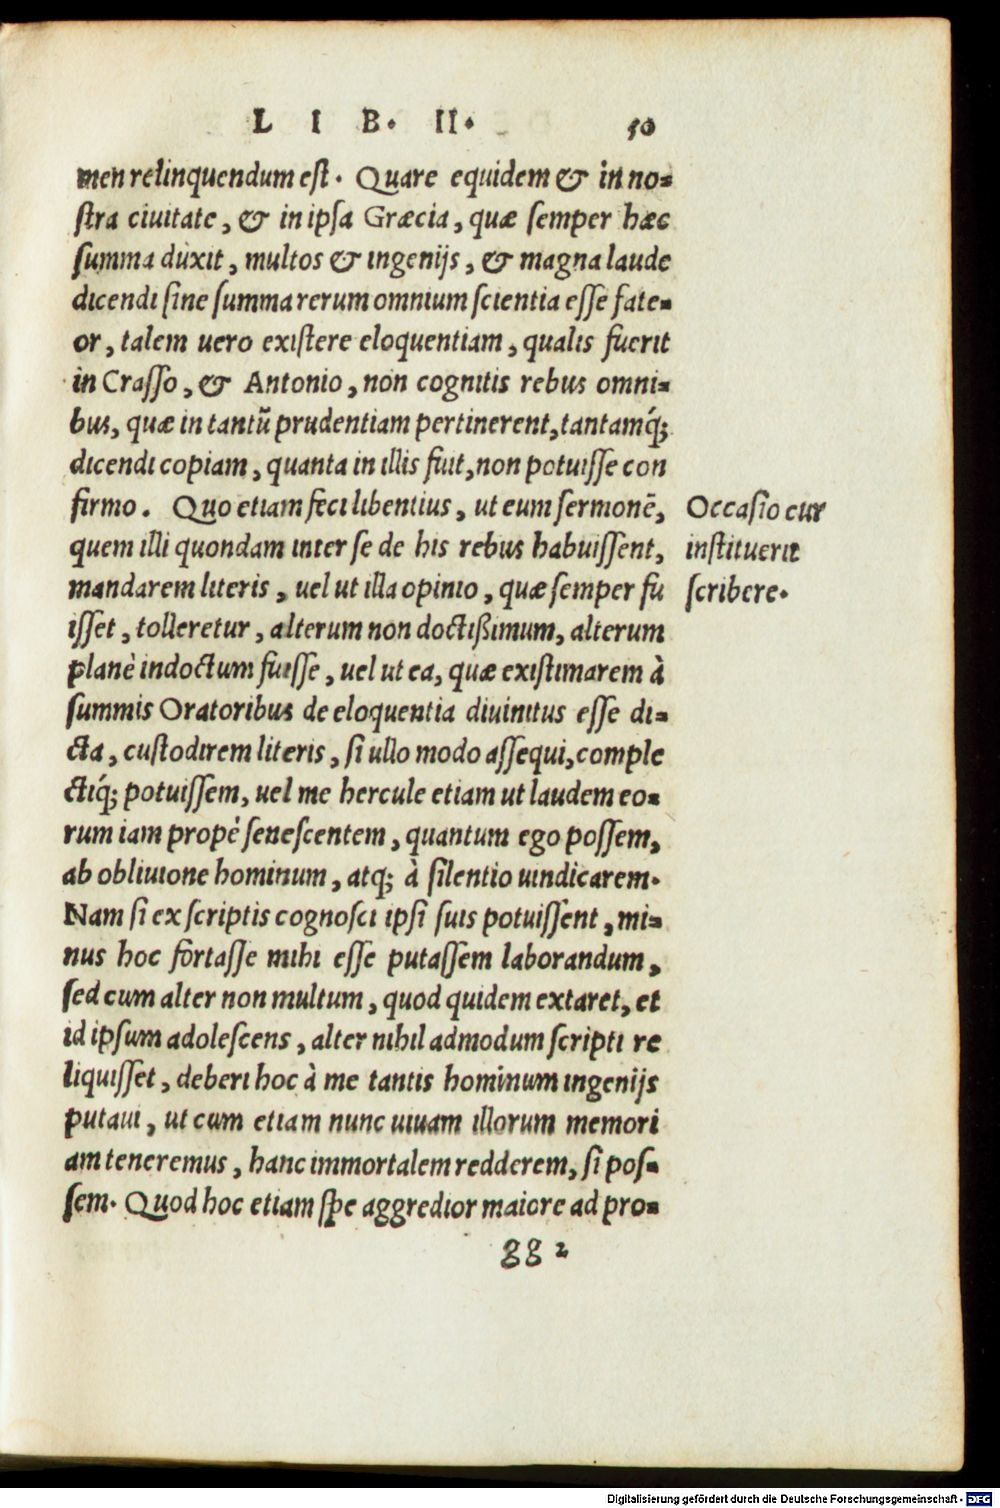 LIB. II. 50
men relinquendum est. Quare equidem & in no-
stra ciuitate, & in ipsa Græcia, quæ semper hæc
summa duxit, multos & ingenijs, & magna laude
dicendi sine summa rerum omnium scientia esse fate-
or, talem uero existere eloquentiam, qualis fuerit
in Crasso, & Antonio, non cognitis rebus omni-
bus, quæ in tantũ prudentiam pertinerent, tantamq́;
dicendi copiam, quanta in illis fuit, non potuisse con
firmo. Quo etiam feci libentius, ut eum sermonẽ,
quem illi quondam inter se de his rebus habuissent,
mandarem literis, uel ut illa opinio, quæ semper fu
isset, tolleretur, alterum non doctißimum, alterum
planè indoctum fuisse, uel ut ea, quæ existimarem à
summis Oratoribus de eloquentia diuinitus esse di-
cta, custodirem literis, si ullo modo assequi, comple
ctiq́; potuissem, uel me hercule etiam ut laudem eo-
rum iam propè senescentem, quantum ego possem,
ab obliuione hominum, atq; à silentio uindicarem.
Nam si ex scriptis cognosci ipsi suis potuissent, mi-
nus hoc fortasse mihi esse putassem laborandum,
sed cum alter non multum, quod quidem extaret, et
id ipsum adolescens, alter nihil admodum scripti re
liquisset, deberi hoc à me tantis hominum ingenijs
putaui, ut cum etiam nunc uiuam illorum memori
am teneremus, hanc immortalem redderem, si pos-
sem. Quod hoc etiam spe aggredior maiore ad pro-
gg 2
Occasio cur
instituerit
scribere.
Digitalisierung gefördert durch die Deutsche Forschungsgemeinschaft - DFG